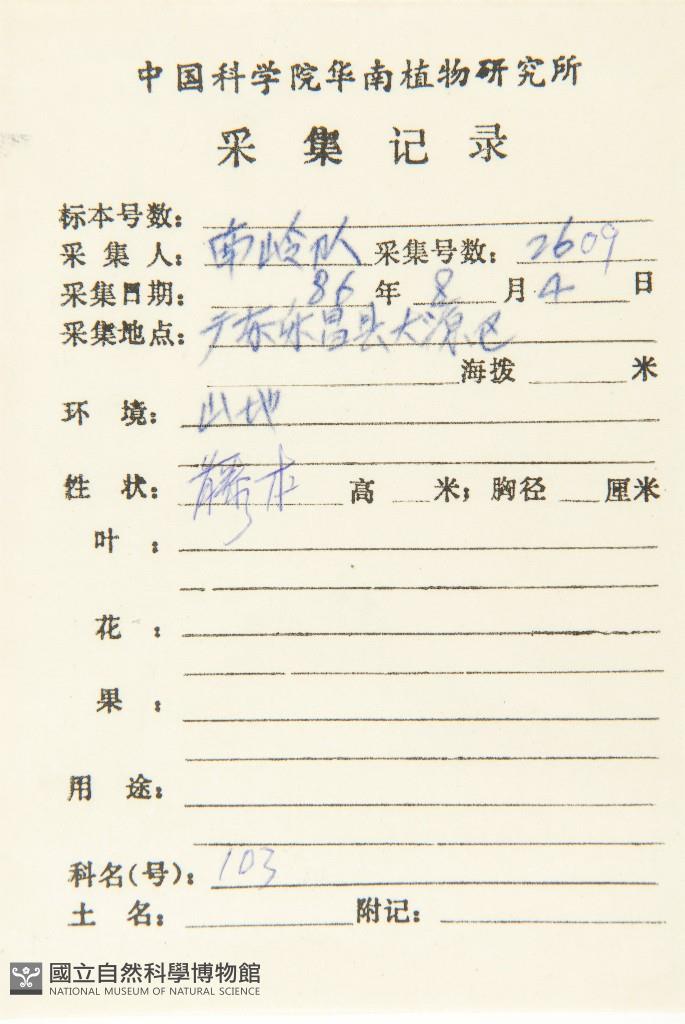 中国科学院华南植物研究所
采集记录
标本号数:
采集人: 南岭队 采集号数: 2609
采集日期: 86 年 8 月 4 日
采集地点: 广东乐昌县大源区
海拨 米
环境: 山地
性状: 藤本 高 米; 胸径 厘米
叶:
花:
果:
用途:
科名(号): 103
土名: 附记:
國立自然科學博物館
NATIONAL MUSEUM OF NATURAL SCIENCE